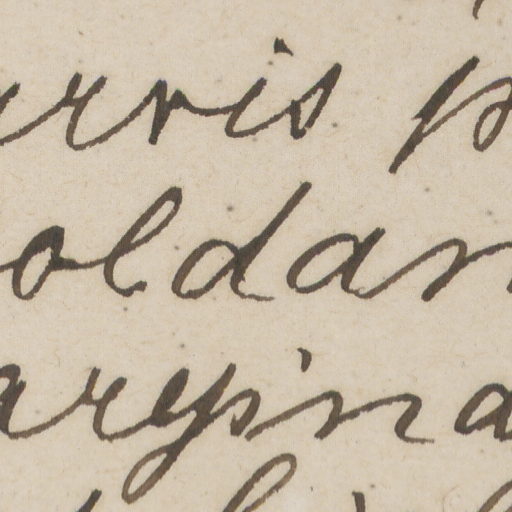 urvis p
oldan
argina